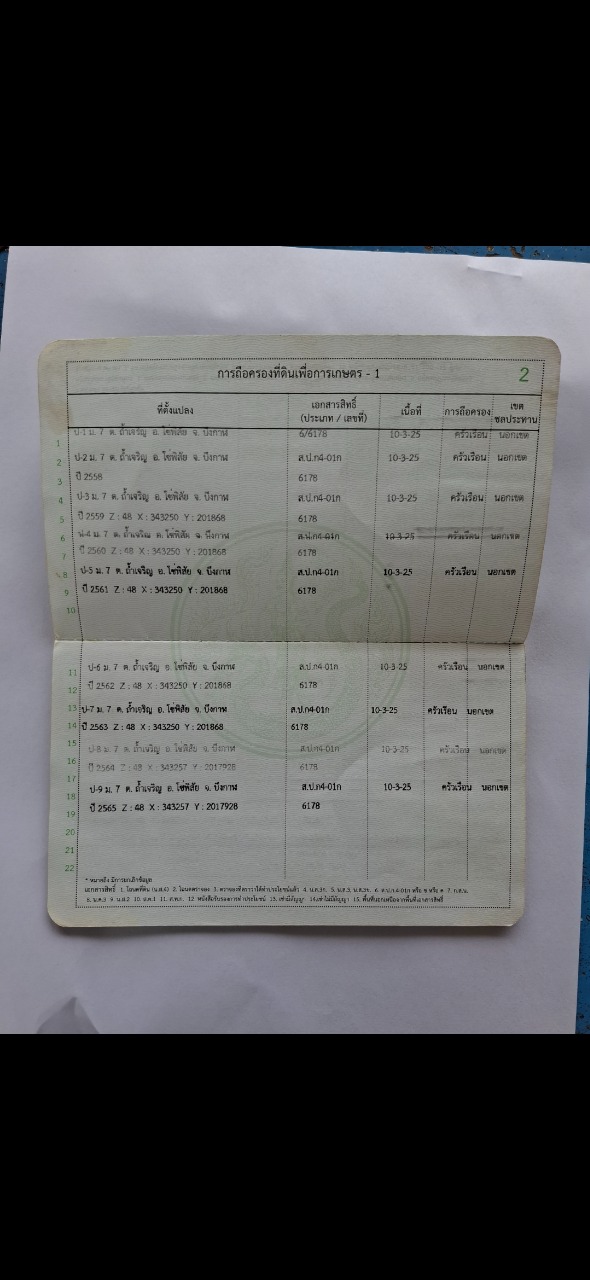 การถือครองที่ดินเพื่อการเกษตร - 1 2
ที่ตั้งแปลง เอกสารสิทธิ์ (ประเภท / เลขที่) เนื้อที่ การถือครอง เขตชลประทาน
1 ป-1 ม. 7 ต. ถ้ำเจริญ อ. โซ่พิสัย จ. บึงกาฬ 6/6178 10-3-25 ครัวเรือน นอกเขต
2 ป-2 ม. 7 ต. ถ้ำเจริญ อ. โซ่พิสัย จ. บึงกาฬ ส.ป.ก4-01ก 10-3-25 ครัวเรือน นอกเขต
3 ปี 2558 6178
4 ป-3 ม. 7 ต. ถ้ำเจริญ อ. โซ่พิสัย จ. บึงกาฬ ส.ป.ก4-01ก 10-3-25 ครัวเรือน นอกเขต
5 ปี 2559 Z : 48 X : 343250 Y : 201868 6178
6 ป-4 ม. 7 ต. ถ้ำเจริญ อ. โซ่พิสัย จ. บึงกาฬ ส.ป.ก4-01ก 10-3-25 ครัวเรือน นอกเขต
7 ปี 2560 Z : 48 X : 343250 Y : 201868 6178
8 ป-5 ม. 7 ต. ถ้ำเจริญ อ. โซ่พิสัย จ. บึงกาฬ ส.ป.ก4-01ก 10-3-25 ครัวเรือน นอกเขต
9 ปี 2561 Z : 48 X : 343250 Y : 201868 6178
10
11 ป-6 ม. 7 ต. ถ้ำเจริญ อ. โซ่พิสัย จ. บึงกาฬ ส.ป.ก4-01ก 10-3-25 ครัวเรือน นอกเขต
12 ปี 2562 Z : 48 X : 343250 Y : 201868 6178
13 ป-7 ม. 7 ต. ถ้ำเจริญ อ. โซ่พิสัย จ. บึงกาฬ ส.ป.ก4-01ก 10-3-25 ครัวเรือน นอกเขต
14 ปี 2563 Z : 48 X : 343250 Y : 201868 6178
15 ป-8 ม. 7 ต. ถ้ำเจริญ อ. โซ่พิสัย จ. บึงกาฬ ส.ป.ก4-01ก 10-3-25 ครัวเรือน นอกเขต
16 ปี 2564 Z : 48 X : 343257 Y : 2017928 6178
17
18 ป-9 ม. 7 ต. ถ้ำเจริญ อ. โซ่พิสัย จ. บึงกาฬ ส.ป.ก4-01ก 10-3-25 ครัวเรือน นอกเขต
19 ปี 2565 Z : 48 X : 343257 Y : 2017928 6178
20
21
22
* หมายถึง มีการยกเลิกข้อมูล
เอกสารสิทธิ์ 1. โฉนดที่ดิน (น.ส.4) 2. โฉนดตราจอง 3. ตราจองที่ตราว่าได้ทำประโยชน์แล้ว 4. น.ส.3ก. 5. น.ส.3, น.ส.3ข. 6. ส.ป.ก.4-01ก หรือ ข หรือ ค 7. ก.ส.น.
8. น.ค.3 9. น.ส.2 10. ส.ค.1 11. ส.ท.ก. 12. หนังสือรับรองการทำประโยชน์ 13. เช่ามีสัญญา 14.เช่าไม่มีสัญญา 15. พื้นที่นอกเหนือจากพื้นที่เอกสารสิทธิ์